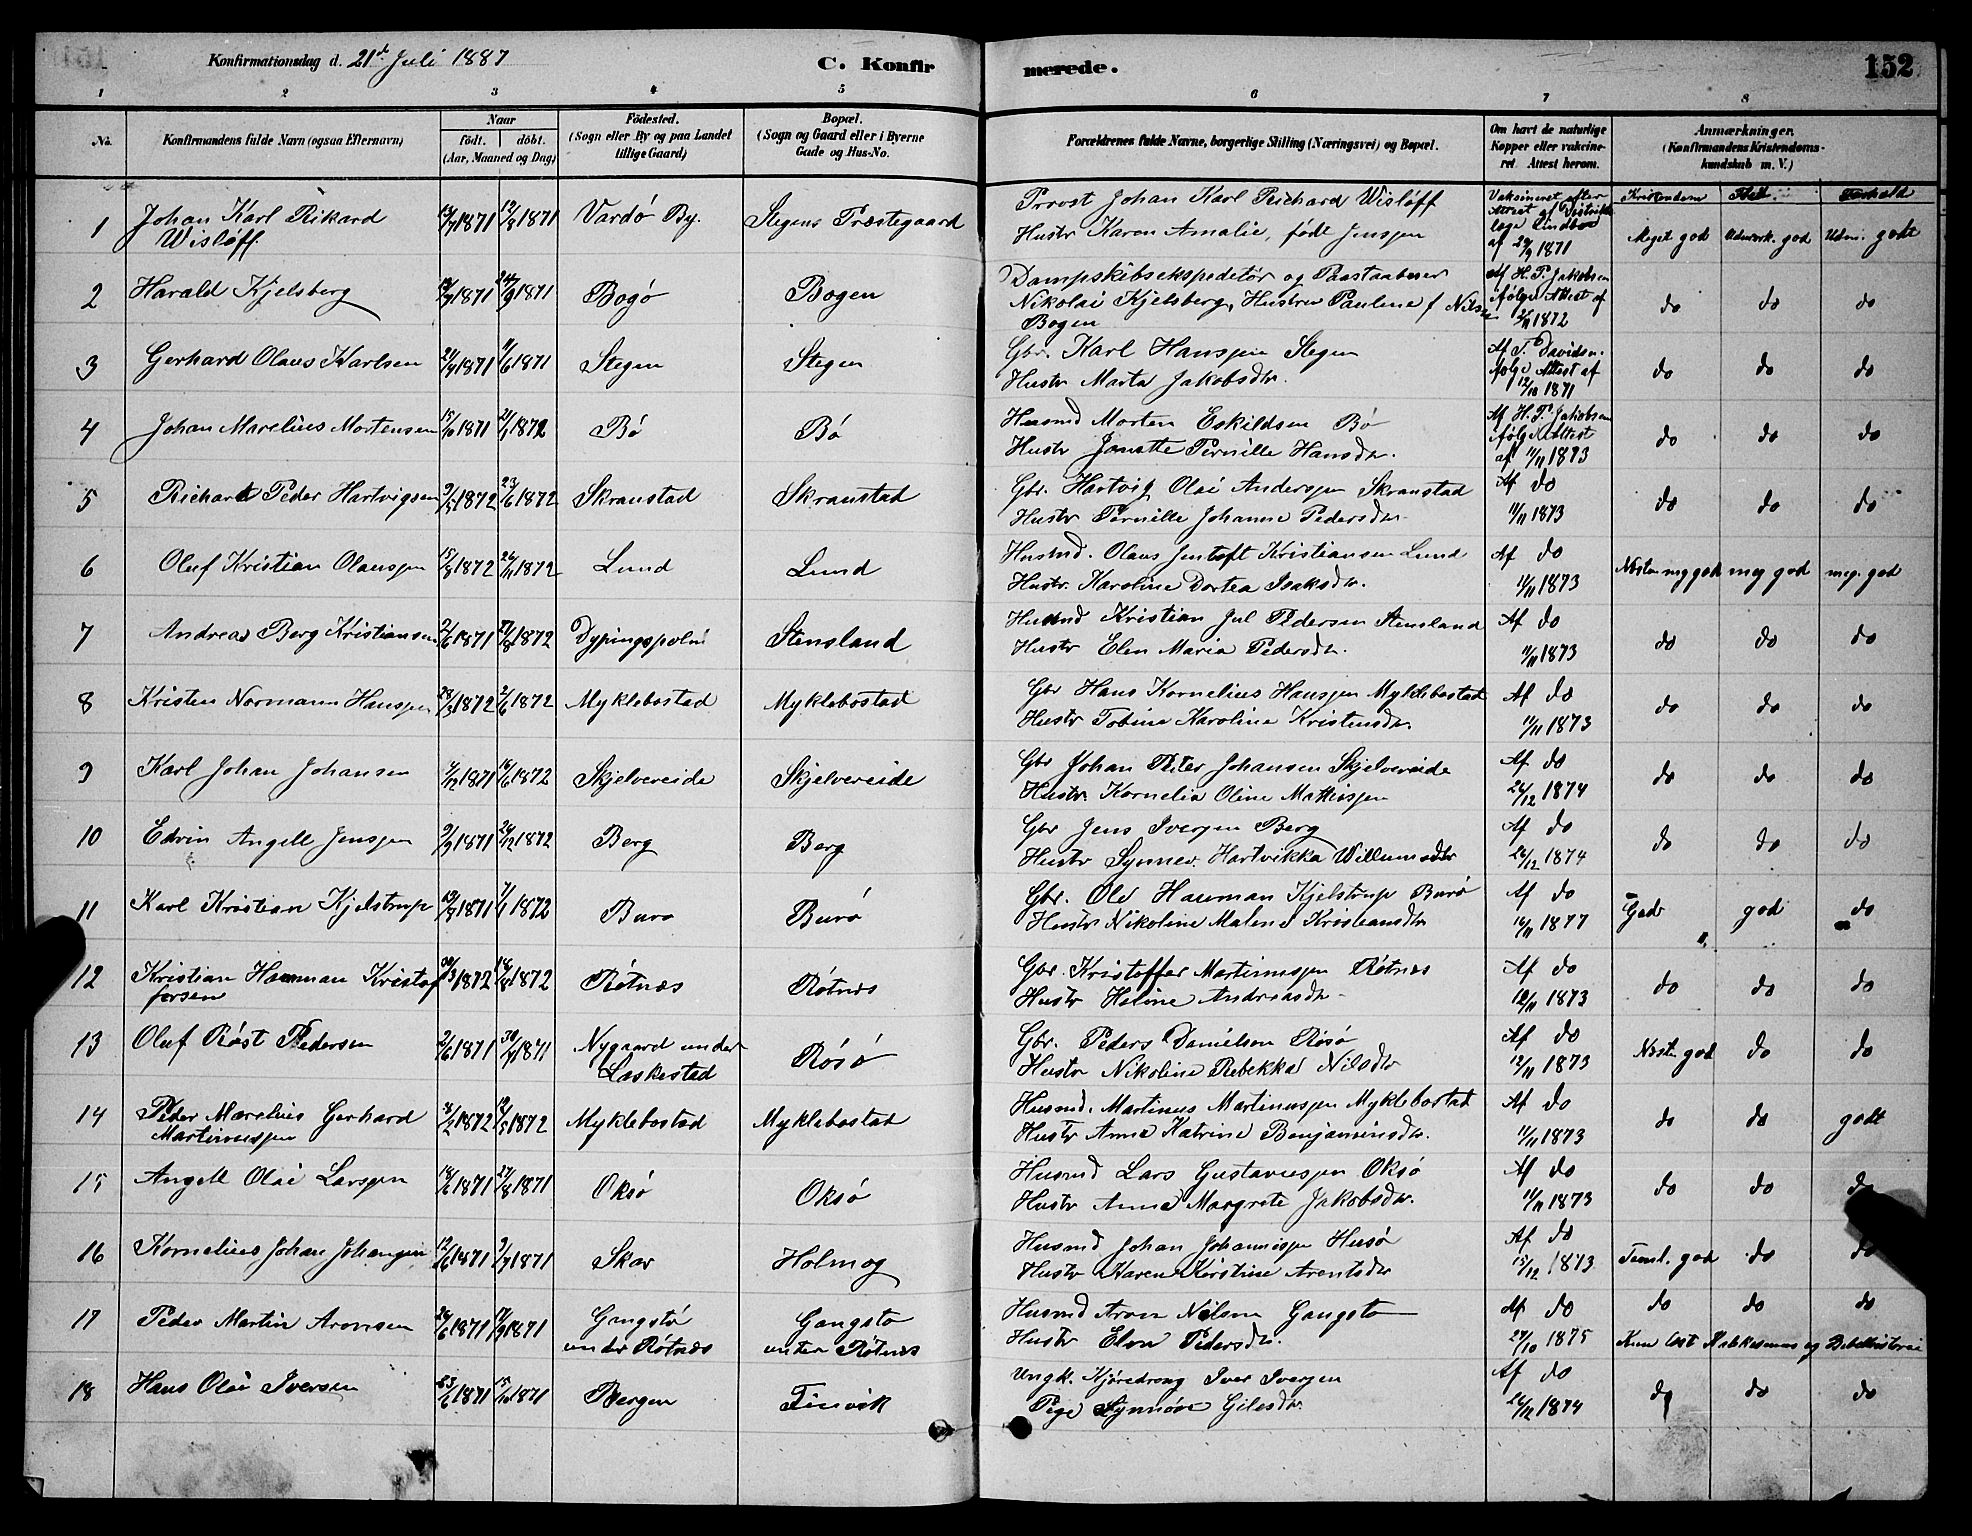 Konfirmationsdag d. 21d Juli 1887
C. Konfir
merede.
152
1 2 3 4 5 6 7 8
No.
Konfirmandens fulde Navn (ogsaa Efternavn)
Naar
født. døbt.
(Aar, Maaned og Dag)
Fødested.
(Sogn eller By og paa Landet
tillige Gaard)
Bopæl.
(Sogn og Gaard eller i Byerne
Gade og Hus-No.
Forældrenes fulde Navne, borgerlige Stilling (Næringsvei) og Bopæl.
Om havt de naturlige
Kopper eller vakcine-
ret. Attest herom.
Anmærkninger.
(Konfirmandens Kristendoms-
kundskab m. V.)
Kristendom Forhold
1 Johan Karl Rikard 1871 1871 Vardø By. Stegens Præstegaard Provst Johan Karl Richard Wisløff Vaksineret efter
Wisløff. Hustr Karen Amalie, født Jenssen Attest af 1871 Meget god Udmærk. god Udm. godt
2 Harald Kjelsberg 1871 1871 Bogø Bogen Dampskibsekspeditør og Af H. P. Jakobsen
Nikolai Kjelsberg, Hustru Pauline f Nilsen ifølge Attest af do do do
Bogen 1872
3 Gerhard Olaus Karlsen 1871 1871 Stegen Stegen Gbr. Karl Hanssen Stegen Af T. Davidsn.
Hustr Marta Jakobsdtr. følge Attest af do do do
12/10 1871
4 Johan Marelius Mortensen 1871 1872 Bø Bø Husmd Morten Eskildsen Bø Af H. P. Jakobsen
Hustr Janette Pernille Hansdtr. ifølge Attest do do do
af 11/11 1873
5 Richard Peder Hartvigsen 1872 23/6 1872 Skranstad Skranstad Gbr. Hartvig Olai Anderssen Skranstad Af do
Hustr Pernille Johanne Pedersdtr 11/11 1873 do do do
6 Oluf Kristian Olaussen 1872 1872 Lund Lund Husmd. Olaus Jentoft Kristiansen Lund Af do
Hustr. Karoline Dortea Isaksdtr. 11/11 1873 Næsten meg god meg god meg. god
7 Andreas Berg Kristiansen 1871 1872 Stensland Husmd Kristian Jul Pedersen Stensland Af do
Hustr Elen Maria Pedersdtr. 11/11 1873 do do do
8 Kristen Normann Hanssen 28/3 1872 2/6 1872 Myklebostad Myklebostad Gbr Hans Kornelius Hanssen Myklebostad Af do
Hustr Tobine Karoline Kristensdtr. 11/11 1873 do do do
9 Karl Johan Johansen 1871 16/6 1872 Skjelvereide Skjelvereide Gbr Johan Peter Johansen Skjelvereide Af do
Hustr. Kornelia Oline Mathissen 26/12 1874 do do do
10 Edvin Angell Jenssen 9/9 1871 1872 Berg Berg Gbr Jens Iversen Berg Af do
Hustr Synnev. Hartvikka Willumsdtr 26/12 1874 do do do
11 Karl Kristian Kjelstrup 1871 7/1 1872 Burø Burø Gbr. Ole Hauman Kjelstrup Burø Af do
Hustr Nikoline Malene Kristiansdtr 1877 God god do
12 Kristian Hauman Kristof 1872 1872 Røtnæs Røtnæs Gbr. Kristoffer Martinussen Røtnæs Af do
fersen Hustr Heline Andreasdtr 1873 do do do
13 Oluf Røst Pedersen 2/6 1871 30/7 1871 Nygaard under Røsø Gbr. Peders Danielsen Røsø Af do
Laskestad Hustr Nikoline Rebekka Nilsdtr 12/11 1873 Næsten god do do
14 Peder Marelius Gerhard 1872 1872 Myklebostad Myklebostad Husmd. Martinus Martinussen Myklebostad Af do
Martinussen Hustr Anne Katrine Benjaminsdtr. 11/11 1873 do do godt
15 Angell Olai Larssen 18/6 1871 27/8 1871 Oksø Oksø Husmd Lars Gustavussen Oksø Af do
Hustr Anne Margrete Jakobsdtr. 11/11 1873 do do do
16 Kornelius Johan Johanssen 12/6 1871 1871 Skar Holmog Husmd Johan Johannissen Husø Af do
Hustr Karen Kirstine Arentsdtr 15/12 1873 Teml. god do do
17 Peder Martin Aronsen 26/6 1871 17/9 1871 Gangstø Gangstø Husmd Aron Nilsen Gangstø Af do do do do
under Røtnæs under Røtnæs Hustr Elen Pedersdtr. 27/10 1875 Kun læst Katekismus og Bibelhistorie
18 Hans Olai Iversen 23/6 1871 1871 Bergen Finvik Ungk. Iver Iversen Af do
Pige Synnøve Gilesdtr. 26/12 1874 do do do